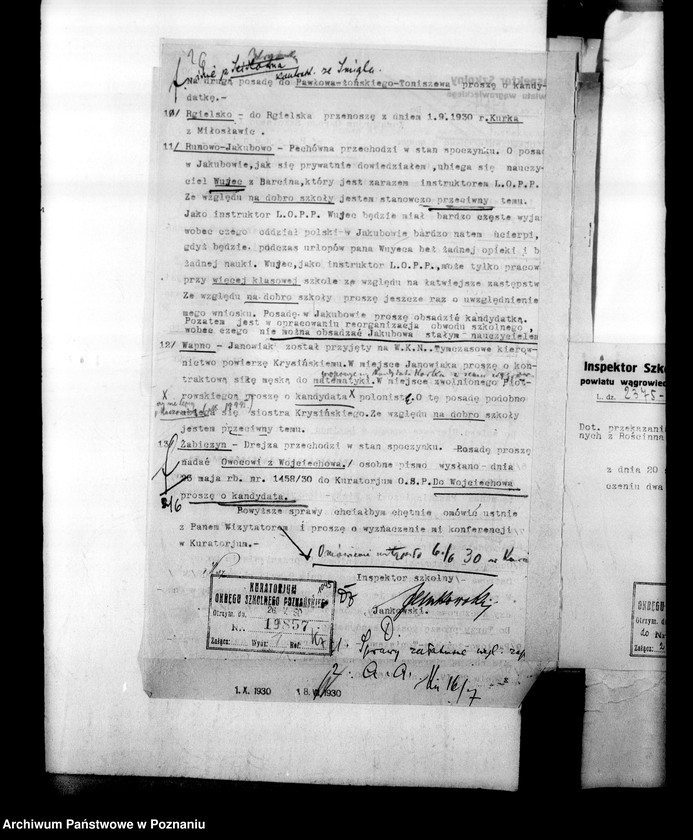 Na drugą posadę do Pawłowa-Żońskiego-Toniszewa proszę o kandy-
datkę.-
10/ Rgielsko - do Rgielska przenoszę z dniem 1.9.1930 r. Kurka
z Miłosławic .
11/ Runowo-Jakubowo - Pechówna przechodzi w stan spoczynku. O posad
w Jakubowie, jak się prywatnie dowiedziałem, ubiega się nauczy-
ciel Wujec z Barcina, który jest zarazem instruktorem L.O.P.P.
Ze względu na dobro szkoły jestem stanowczo przeciwny temu.
Jako instruktor L.O.P.P. Wujec będzie miał bardzo częste wyja
wobec czego oddział polski w Jakubowie bardzo natem ucierpi,
gdyż będzie podczas urlopów pana Wuyeca bez żadnej opieki i b
żadnej nauki. Wujec, jako instruktor L.O.P.P., może tylko pracow
przy więcej klasowej szkole ze względu na łatwiejsze zastępstw
Ze względu na dobro szkoły proszę jeszcze raz o uwzględnienie
mego wniosku. Posadę w Jakubowie proszę obsadzić kandydatką.
Pozatem jest w opracowaniu reorganizacja obwodu szkolnego ,
wobec czego nie można obsadzać Jakubowa stałym nauczycielem
12/ Wapno - Janowiak został przyjęty na W.K.N. Tymczasowe kierow-
nictwo powierzę Krysińskiemu. W miejsce Janowiaka proszę o kon-
traktową siłę męską do matematyki. W miejsce zwolnionego Piot-
rowskiego proszę o kandydata X polonistę. O tę posadę podobno
się siostra Krysińskiego. Ze względu na dobro szkoły
jestem przeciwny temu.
13/ Żabiczyn - Drejza przechodzi w stan spoczynku. Posadę proszę
nadać Owocowi z Wojciechowa./ osobne pismo wysłano dnia
26 maja rb. nr. 1458/30 do Kuratorjum O.S.P. Do Wojciechowa
proszę o kandydata.
2/6
Powyższe sprawy chciałbym chętnie omówić ustnie
z Panem Wizytatorem i proszę o wyznaczenie mi konferencji
w Kuratorjum.-
Omówienie 6/6 30 w
Inspektor szkolny
Jankowski.
KURATORIUM
OKRĘGU SZKOLNEGO POZNAŃSKIEGO
Otrzym. dn.
Nr. 19857
Załącz: Wydz: Ref:
1. Sprawy załatwione
2. a.a.
16/7
1. X. 1930
1 8. VI. 1930
Inspektor Szko
powiatu wągrowiec
L. dz. 2375
Dot. przekazani
nych z Rościnna
z dnia 20
czeniu dwa
OKRĘGU
Otrzym. do
do Nr
Załącz: 2
Archiwum Państwowe w Poznaniu